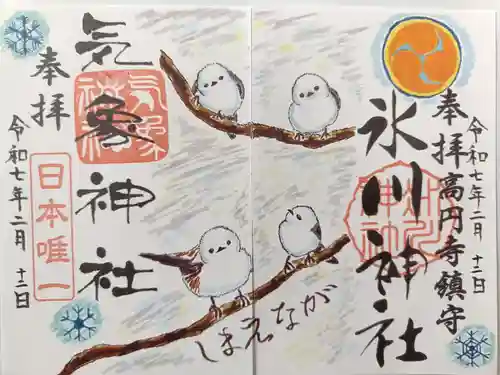 奉拝
高円寺鎮守
氷川神社
令和七年二月十二日
奉拝
気象神社
日本唯一
令和七年二月十二日
しまえながが